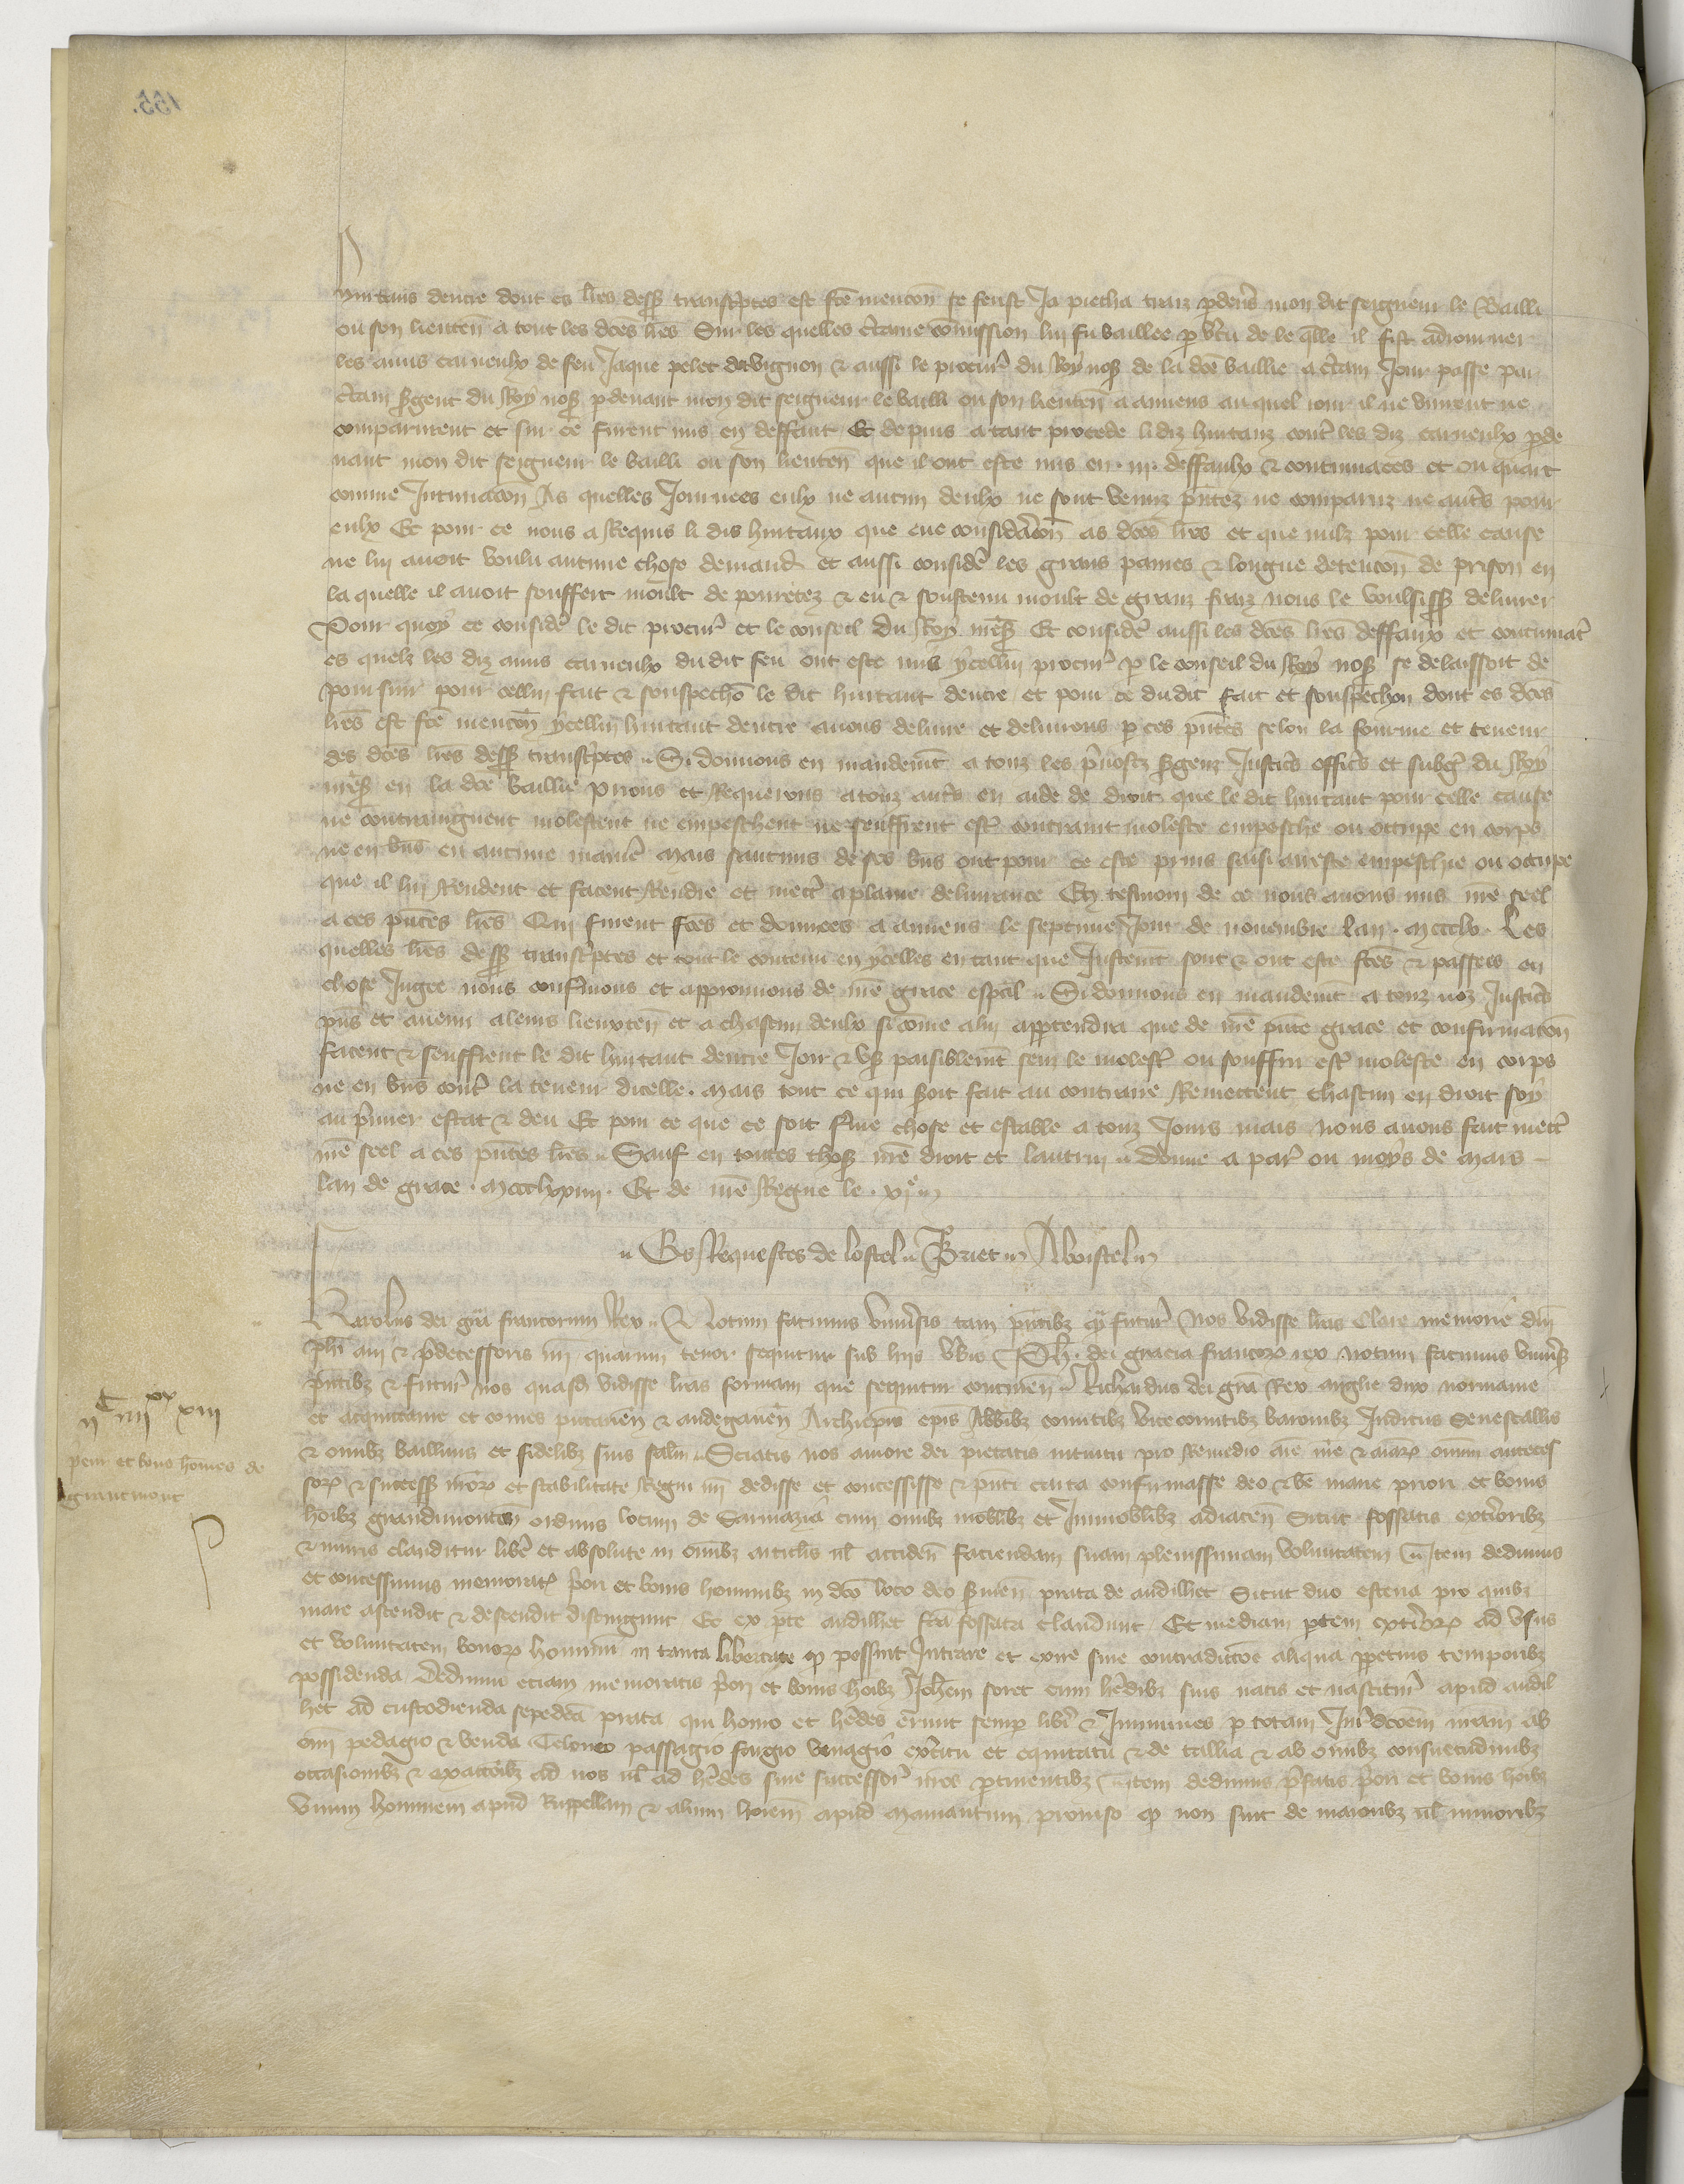 hurtaus dencre dont es lres dessꝰ transcͥptes est fcē mencōn se feust Ja piecha traiz p̱deuͣt mon dit seigneur le Bailli
ou son lieuteñ a tout les dc̄es lres Sur les quelles c̾taine cōmission lui fu baillee ꝑ v̾tu de le q̄lle il fist adiourner
les amis carneulx de feu Jaque pelet davignon & aussi le procur̾ du Roy nosꝰ de la dc̄e baillie a c̾tain Jour passe par
c̾tain s̾gent du Roy nosꝰ ꝑdeuant mon dit seigneur le bailli ou son lieuteñ a amiens au quel iour il ne vinrent ne
comparurent et sur ce furent mis en deffaut Et depuis a tant procede li diz hurtauz cont̾ les diz carneulx ꝑde
uant mon dit seigneur le bailli ou son lieuteñ que il ont este mis en .iii. deffaulx & contumaces et ou quart
comme Intimacōn As quelles Journees eulx ne aucun deulx ne sont venuz p̄ntez ne comparuz ne aut̾s pour
eulx Et pour ce nous a Requis li dis hurtaux que eue considācōn as dc̄es lres et que nulz pour celle cause
ne lui auoit voulu aucune chose demand̾ et aussi consider̾ les grans paines & longue detencōn de prison en
la quelle il auoit souffert moult de pouretez & eu & soustenu moult de granz fraiz nous le voulsissꝰ deliurer
Pour quoy ce consider̾ le dit procur̾ et le conseil du Roy nr̄esꝰ Et consider̾ aussi les dc̄es lres deffaux et contumac̾
es quelz les diz amis carneulx du dit feu ont este mis ycellui procur̾ ꝑ le conseil du Roy nosꝰ se delaissoit de
poursuir pour cellui fait & souspechō le dit hurtaut dencre et pour ce dudit fait et souspechon dont es dc̄es
lres est fcē mencōn ycellui hurtaut dencre auons deliure et deliurons ꝑ ces p̄ntes selon la fourme et teneur
des dc̄es lres dessꝰ transcͥptes Si donnons en mandemt a touz les p̾uostz s̾genz Justic̾s offic̾s et subg̾ du Roy
nr̄esꝰ en la dc̄e baillie prions et Requerons a touz aut̾s en aide de droit que le dit hurtaut pour celle cause
ne contraingnent molestent ne empeschent ne seuffrent est̾ contraint moleste empesche ou occupe en corps
ne en bn̄s en aucune manie̾ mais saucuns de ses bn̄s ont pour ce este prins saisi arreste empeschie ou occupe
que il lui Rendent et facent Rendre et mect̾ a plaine deliurance En tesmoin de ce nous auons mis nr̄e seel
a ces p̄ntes lres Qui furent fc̄es et donnees a amiens le septime Jour de nouembre lan . mccclv . Les
quelles lres dessꝰ transcͥptes et tout le contenu en ycelles en tant que Justemt sont & ont este fc̄es & passees en
chose Jugee nous confmons et approuuons de nr̄e grace espāl Si donnons en mandemt a touz noz Justic̾s
p̄ns et auenir a leurs lieuxteñ et a chascun deulx si cōme a lui appartendra que de nr̄e p̄nte grace et confirmacōn
facent & seuffrent le dit hurtaut dencre Joir & vsꝰ paisiblemt senz le molest̾ ou souffrir est̾ moleste en corps
ne en bn̄s cont̾ la teneur dicelle . mais tout ce qui s̾oit fait au contraire Remectent chascun en droit soy
au p̾mier estat & deu Et pour ce que ce soit f̾me chose et estable a touz Jours mais nous auons fait mect̾
nr̄e seel a ces p̄ntes lres Sauf en toutes chosꝰ nr̄e droit et lautrui donne a par̾ ou moys de mars
lan de grace . mccclxxiiii . Et de nr̄e Regne le . xie
Es Requestes de lostel Briet Aboistel
Karolus dei grā francorum Rex Notum facimus vniu̾sis tam p̄ntibȝ qȝ futur̾ Nos vidisse lras Clare memorie dn̄i
ph̄i aui & p̾decessoris nr̄i quarum tenor sequitur sub hijs v̾bis Ph̄ . dei gracia francorꝝ rex notum facimus vniu̾sȝ
p̄ntibȝ & futur̾ nos quasd̾ vidisse lras formam que sequitur continen̄ Richardus dei grā Rex anglie dux normanie
et acquitanie et comes pictauen̄ & andegauen̄ Archiepīs epīs Abb̄ibȝ comitibȝ vicecomitibȝ baronibȝ Judicibus Senescallis
& om̄ibȝ balliuis et fidelibȝ suis salt̄m Sciatis nos amore dei pietatis intuitu pro Remedio aīe nr̄e & aīarꝝ om̄ium anteces
sorꝝ & successꝰ nr̄orꝝ et stabilitate Regni nr̄i dedisse et concessisse & p̄nti carta confirmasse deo & bē marie priori et bonis
hoībȝ grandimonten̄ ordinis locum de Sarmazia cum om̄ibȝ mobilibȝ et Inmobilibȝ adiacen̄ Sicut fossatis ext̾ioribȝ
& muris clauditur libe̾ et absolute in om̄ibȝ articl̄is ul̄ acciden̄ faciendam suam plenissimam voluntatem Item dedimus
et concessimus memorat̾ p̾ori et bonis hominibȝ in dc̄o loco deo s̾uien̄ prata de andilhet Sicut duo esteria pro quibȝ
mare ascendit & descendit distingunt Ee ex ꝑte andilhet fcā fossata claudunt Et mediam ꝑtem ext̾iorꝝ ad vsus
et voluntatem bonorꝝ hominum in tanta libertate qȝ possint Intrare et exire sine contradictōe aliqua ꝑpetuis temporibȝ
possidenda Dedimus etiam memoratis p̾ori et bonis hoībȝ Joh̄em foret cum h̄edibȝ suis natis et nascitur̾ apud andil
het ad custodienda sepedcā prata qui homo et h̄edes erunt semꝑ libe̾i & Immunes ꝑ totam Jur̾dc̄oēm nr̄am ab
om̄i pedagio & venda Teloneo passagio fuagio vinagio exc̾itu et equitatu & de tallia & ab om̄ibȝ consuetudinibȝ
occasionibȝ & exactōibȝ ad nos ul̄ ad h̄edes siue successor̾ nr̄os ꝑtinentibȝ Item dedimus p̾fatis p̾ori et bonis hoībȝ
Vnum hominem apud Ruppellam & alium hoīem apud Marantum prouiso qȝ non sint de maioribȝ ul̄ minoribȝ
nC iiiixx xiii
prieur et bons homes de
grantmont